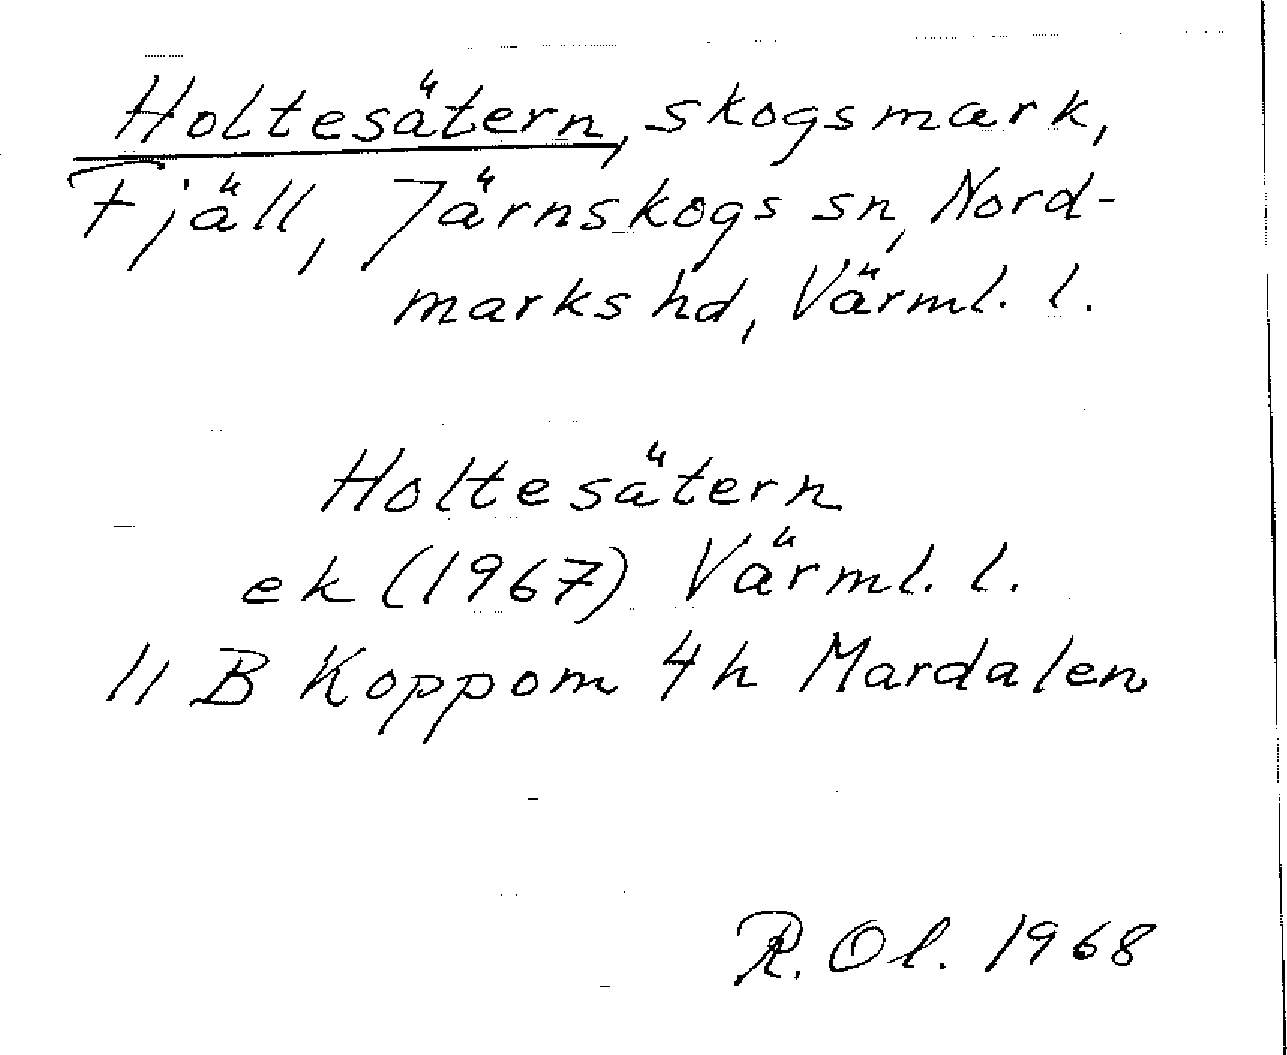 Holtesätern, skogsmark,
Fjäll, Järnskogs sn, Nord-
marks hd, Värml. l.
Holtesätern
ek (1967) Värml. l.
11 B Koppom 4h Mardalen
R. Ol. 1968